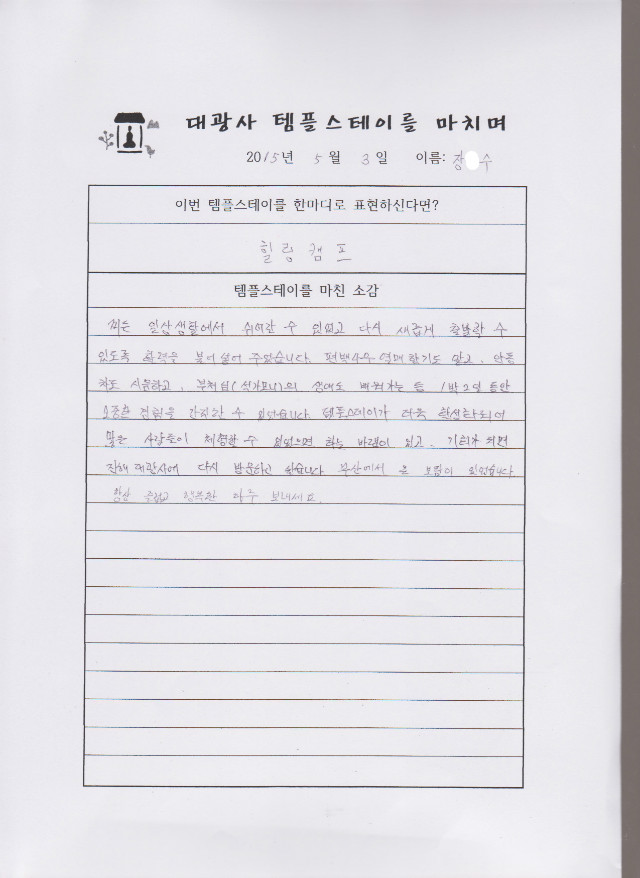 대광사 템플스테이를 마치며
2015년 5월 3일 이름: 장 수
이번 템플스테이를 한마디로 표현하신다면?
힐링캠프
템플스테이를 마친 소감
찌든 일상생활에서 쉬어갈 수 있었고 다시 새롭게 출발할 수
있도록 활력을 불어 넣어 주었습니다. 편백나무 열매 향기도 맡고,
차도 시음하고, 부처님(석가모니)의 생애도 배워가는 등 1박2일 동안
소중한 경험을 간직할 수 있었습니다. 템플스테이가 더욱 활성화되어
많은 사람들이 체험할 수 있었으면 하는 바램이 있고, 기회가 되면
대광사에 다시 방문하고 싶습니다. 부산에서 온 보람이 있었습니다.
항상 즐겁고 행복한 하루 보내세요.